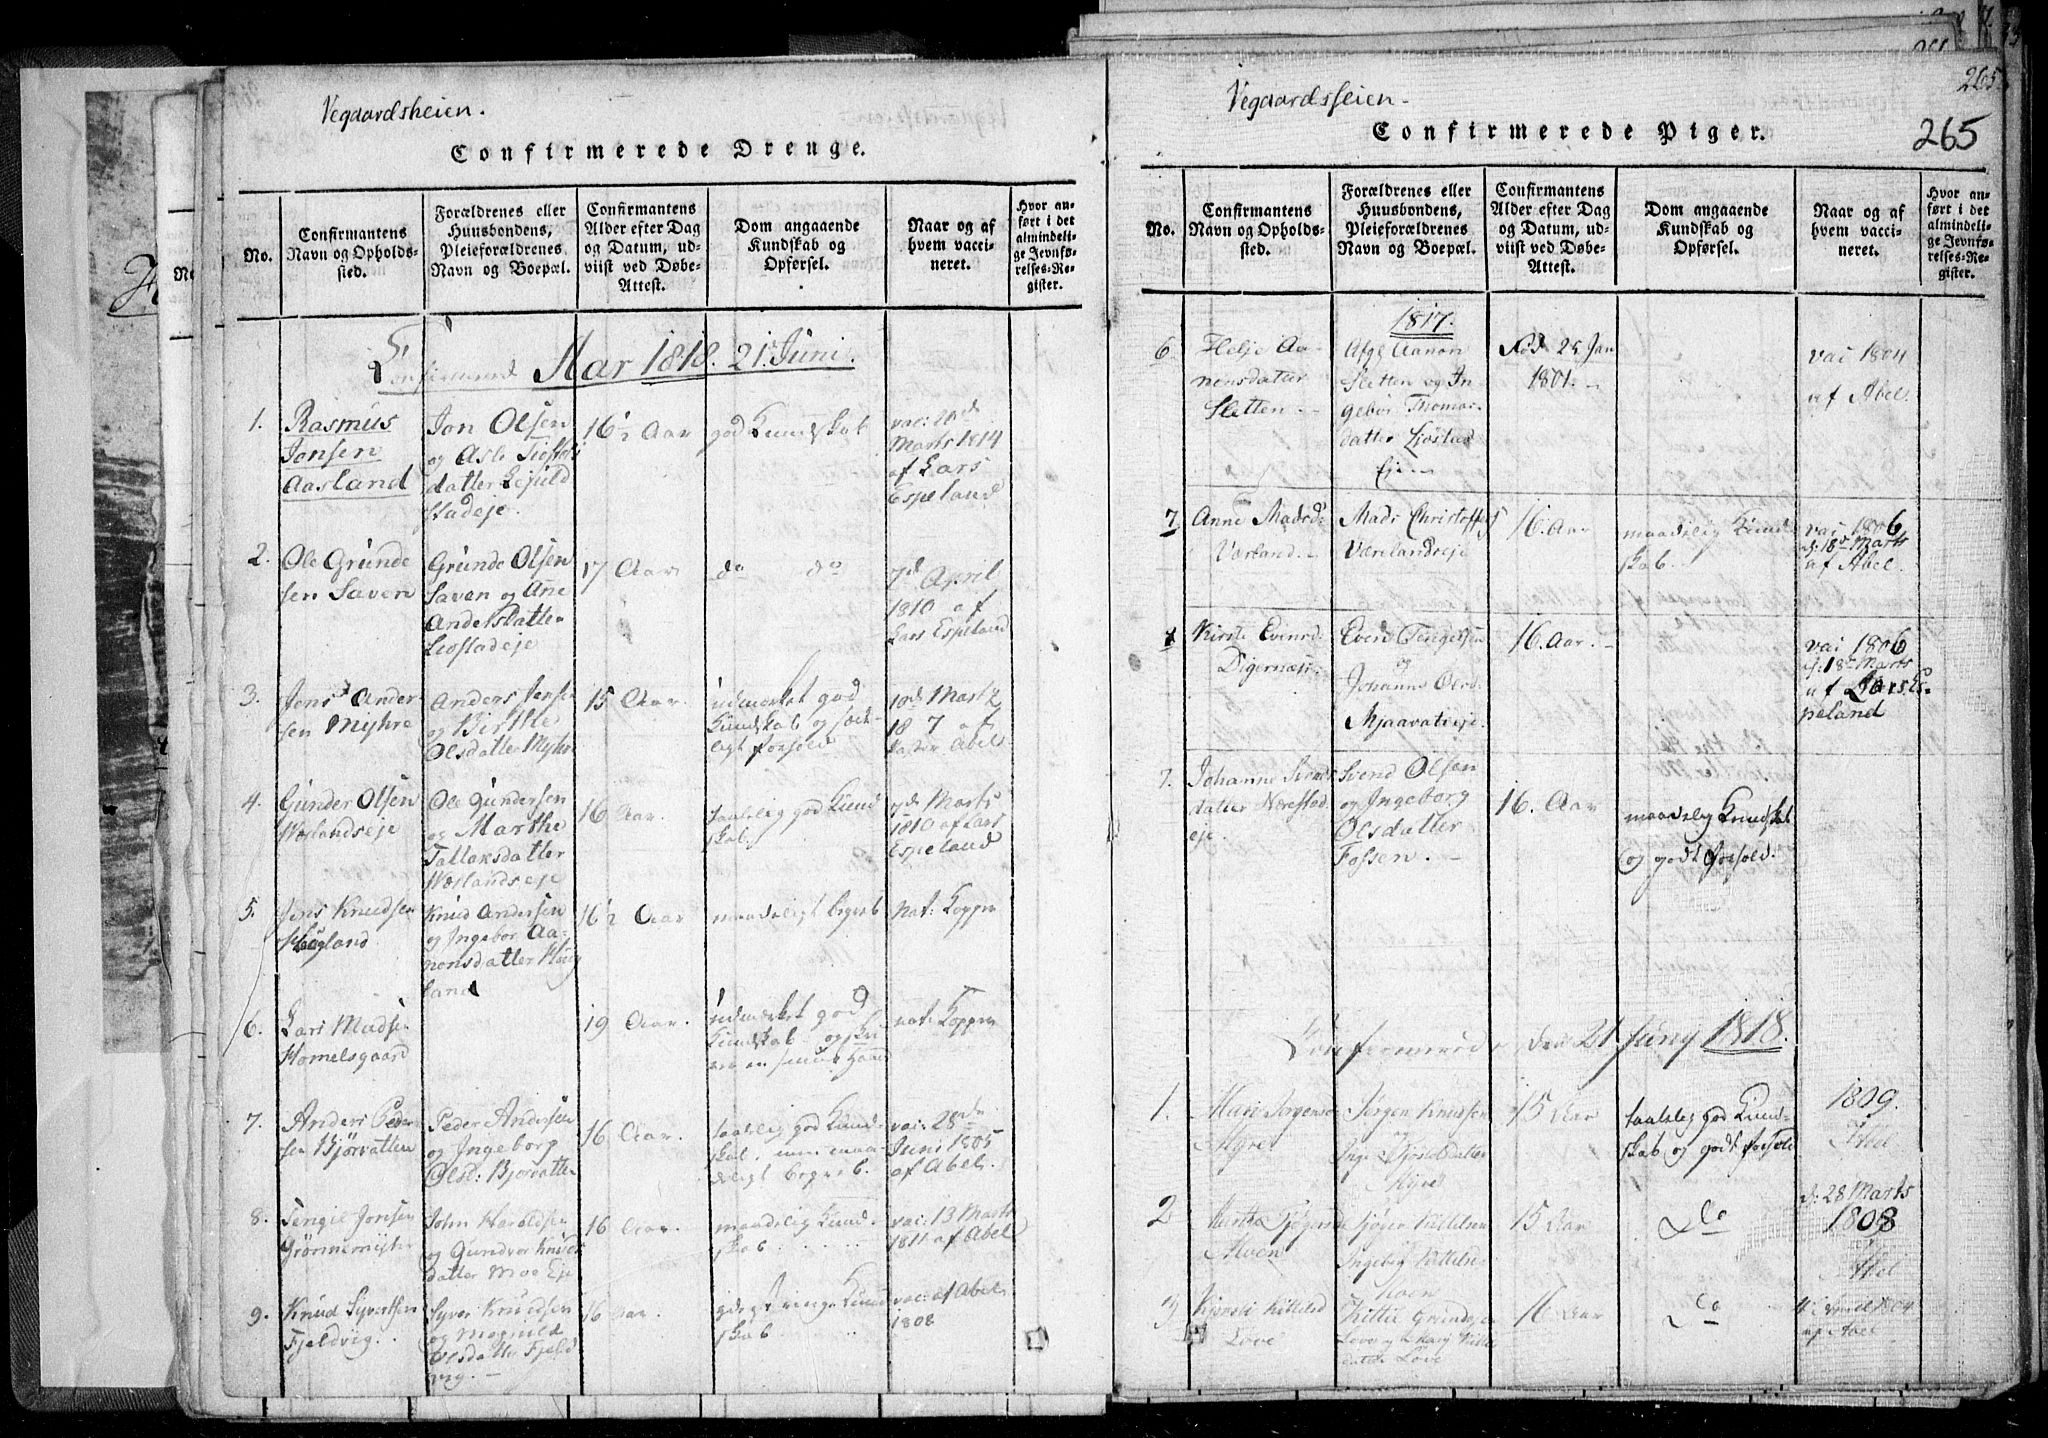 Vegaardsheien.
Confirmerede Drenge.
No.
Confirmantens
Navn og Opholds-
sted.
Forældrenes eller
Huusbondens,
Pleieforældrenes
Navn og Boepæl.
Confirmantens
Alder efter Dag
og Datum, ud-
viist ved Døbe-
Attest.
Dom angaaende
Kundskab og
Opførsel.
Naar og af
hvem vacci-
neret.
Hvor an-
ført i det
almindeli-
ge Jevnfø-
relses-Re-
gister.
Confirmered Aar 1818. 21. Juni.
1.
Rasmus
Jonsen
Aasland
Jon Olsen
og Asle
datter
stadeje.
16½ Aar
god Kundskab
vac: 20de
Marts 1814
af Lars
Espeland
2.
Ole Grunde
sen Saven
Grunde Olsen
Saven og Ane
Liostadeje
17 Aar
do do
7de April
1810 af
Lars Espeland
3.
Jens Ander
sen Myhre
Anders Jensen
og Birthe
Olsdatter Myhre
15 Aar.
udmærket god
Kundskab og
ligt forhold
18de Marts
18 7 af
Pastor Abel
4.
Gunder Olsen
Wæslandseje
Ole Gundersen
og Marthe
Tallaksdatter
Wæslandseje
16 Aar.
taalelig god Kund
skab.
7de Marts
1810 af Lars
Espeland
5.
Jens Knudsen
Hougland
Knud Andersen
og Ingebor Aa-
nonsdatter Houg
land
16½ Aar
maadeligt begreb
nat: Kopper
6.
Lars Madsen
Homelsgaard
19 Aar.
udmærket god
Kundskab
nat: Kopper
7.
Anders Peder
sen Bjørvatten
Peder Andersen
og Ingeborg
Olsd: Bjorvatten
16 Aar.
taalelig god Kund
skab. men maa-
deligt begreb.
vac: 28de
Juni 1805
af Abel.
8.
Tengel Jonsen
Grønnemyhr
John Haroldsen
og Gundvor Knuds
datter Moe Eje
16 Aar.
maadelig Kund.
skab.
vac: 13 Marts
1811 af Abel
9.
Knud Syvertsen
Fjeldvig.
Syver Knudsen
og Mognild
Olsdatter Fjeld
vig.
16 Aar.
ringe Kund
skab
vac: af Abel
1808
Vegaardsheien.
265
265
Confirmerede Piger.
No.
Confirmantens
Navn og Opholds-
sted.
Forældrenes eller
Huusbondens,
Pleieforældrenes
Navn og Boepæl.
Confirmantens
Alder efter Dag
og Datum, ud-
viist ved Døbe-
Attest.
Dom angaaende
Kundskab og
Opførsel.
Naar og af
hvem vacci-
neret.
Hvor an-
ført i det
almindeli-
ge Jevnfø-
relses-Re-
gister.
1817.
6
Helje Aa-
nonsdatter
Sletten.
Afg. Aanon
Sletten og In
gebor Thomas
datter Liøstad
Eje
Fød 25 Jan
1801.
vac 1804
af Abel
7
Anne Madsd:
Værland.
Mads Christoffers
Værelandseje
16. Aar
maadelig Kund
skab.
vac 1806
d: 18de Marts
af Abel.
Kirste Evensd:
Digernæs
Even Tengelsen
og
Johanne
Mjaavatseje.
16. Aar.
vac 1806
d: 18de Marts
af Lars Es-
peland
Johanne Svends
datter Nerestad
eje
Svend Olsen
og Ingeborg
Olsdatter
Fossen.
16. Aar
maadelig Kundskab
og godt forhold.
Confirmerede den 21 Juny 1818.
1.
Mari Jørgensd
Myre
Jørgen Knudsen
og
Myre
15 Aar
taalelig god Kund-
skab og godt forhold
1809.
Abel
2
Moen
Kittelsen
Ingebor Kittelsd
Moen
15 Aar
Do
d: 28 Marts
1808
Abel
3
Kittelsd
Løve
Kittel Grundesen
datter Løve
16 Aar
Do
1804
af Abel